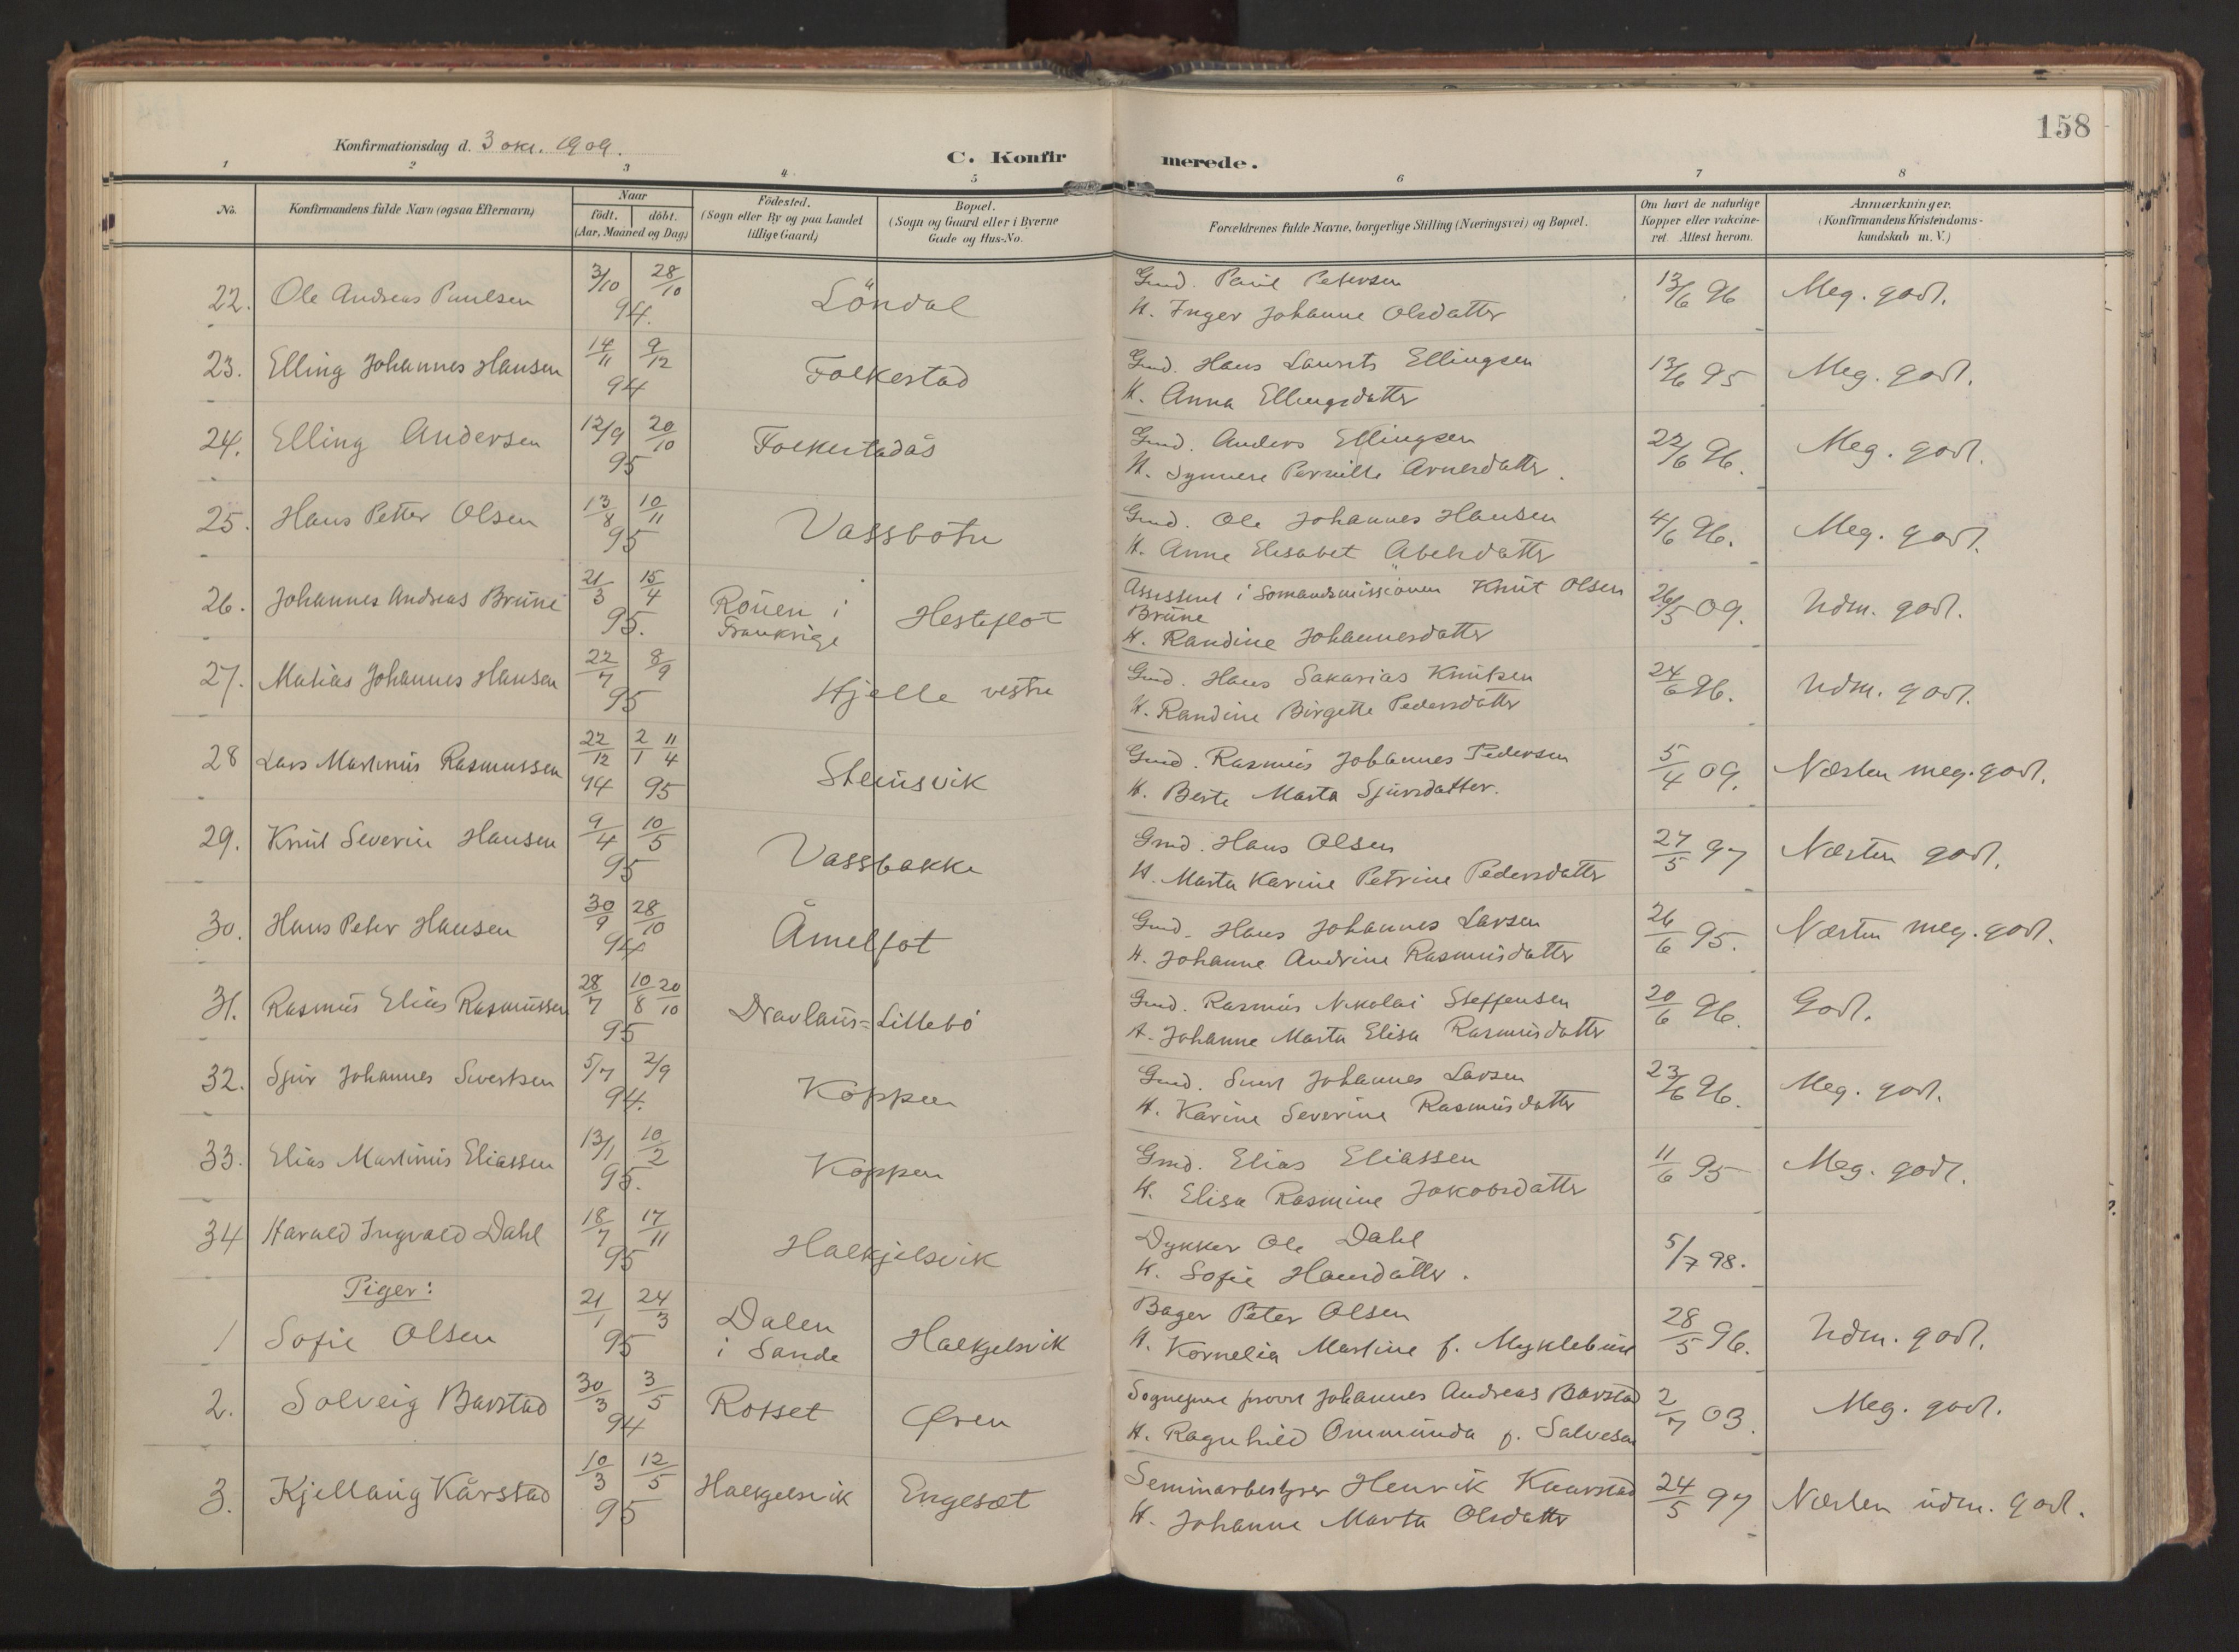 158
Konfirmationsdag d. 3 okt. 1909.
C. Konfirmerede.
1 2 3 4 5 6 7 8
No. Konfirmandens fulde Navn (ogsaa Efternavn) Naar födt. döbt. (Aar, Maaned og Dag) Födested. (Sogn eller By og paa Landet tillige Gaard) Bopæl. (Sogn og Gaard eller i Byerne Gade og Hus-No. Forældrenes fulde Navne, borgerlige Stilling (Næringsvei) og Bopæl. Om havt de naturlige Kopper eller vakcineret. Attest herom. Anmærkninger. (Konfirmandens Kristendomskundskab m. V.)
22. Ole Andreas Paulsen 3/10 28/10 94. Löndal Gmd. Paul Petersen 13/6 96 Meg. godt.
H. Inger Johanne Olsdatter
23. Elling Johannes Hansen 14/11 9/12 94 Folkestad Gmd. Hans Laurits Ellingsen 13/6 95 Meg. godt.
H. Anna Ellingsdatter
24. Elling Andersen 12/9 20/10 95 Folkestadås Gmd. Anders Ellingsen 22/6 96. Meg. godt.
H. Synnøve Pernille Arnesdatter.
25. Hans Petter Olsen 13/8 10/11 95 Vassbotn Gmd. Ole Johannes Hansen 4/6 96. Meg. godt.
H. Anne Elisabet Abelsdatter
26. Johannes Andreas Brune 21/3 15/4 95. Rouen i Frankrige Hesteflot Assistent i Sømandsmissionen Knut Olsen 26/5 09. Udm. godt.
Brune
H. Randine Johannesdatter
27. Matias Johannes Hansen 22/7 8/9 95 Hjelle vestre Gmd. Hans Sakarias Knutsen 24/6 96. Udm. godt.
H. Randine Birgette Pedersdatter
28 Lars Martinus Rasmussen 22/12 94 2/1 11/4 95 Steinsvik Gmd. Rasmus Johannes Pedersen 5/4 09. Næsten meg. godt.
H. Berte Marta Sjursdatter.
29. Knut Severin Hansen 9/4 10/5 95 Vassbakke Gmd. Hans Olsen 27/5 97 Næsten godt.
H. Marta Karine Petrine Pedersdatter
30. Hans Peter Hansen 30/9 28/10 94 Åmelfot Gmd. Hans Johannes Larsen 26/6 95. Næsten meg. godt.
H. Johanne Andrine Rasmusdatter
31. Rasmus Elias Rasmussen 28/7 10/8 20/10 95 Dravlaus=Lillebö Gmd. Rasmus Nikolai Steffensen 20/6 96. Godt.
H. Johanne Marta Elisa Rasmusdatter
32. Sjur Johannes Sivertsen 5/7 2/9 94. Koppen Gmd. Sivert Johannes Larsen 23/6 96. Meg. godt.
H. Karine Severine Rasmusdatter
33. Elias Martinus Eliassen 13/1 10/2 95. Koppen Gmd. Elias Eliassen 11/6 95 Meg. godt.
H. Elisa Rasmine Jakobsdatter
34 Harald Ingvald Dahl 18/7 17/11 95 Halkjelsvik Dykker Ole Dahl 5/7 98.
H. Sofie Hansdatter.
Piger:
1 Sofie Olsen 21/1 24/3 95 Dalen i Sande Halkjelsvik Bager Peter Olsen 28/5 96. Udm. godt.
H. Kornelia Martine f. Myklebust
2. Solveig Barstad 30/3 3/5 94 Rosset Øren Sogneprest provst Johannes Andreas Barstad 2/7 03. Meg. godt.
H. Ragnhild Ommunda f. Salvesen
3. Kjellaug Kårstad 10/3 12/5 95 Halkjelsvik Engeset Seminarbestyrer Henrik Kaarstad 24/5 97 Næsten udm. godt.
H. Johanne Marta Olsdatter